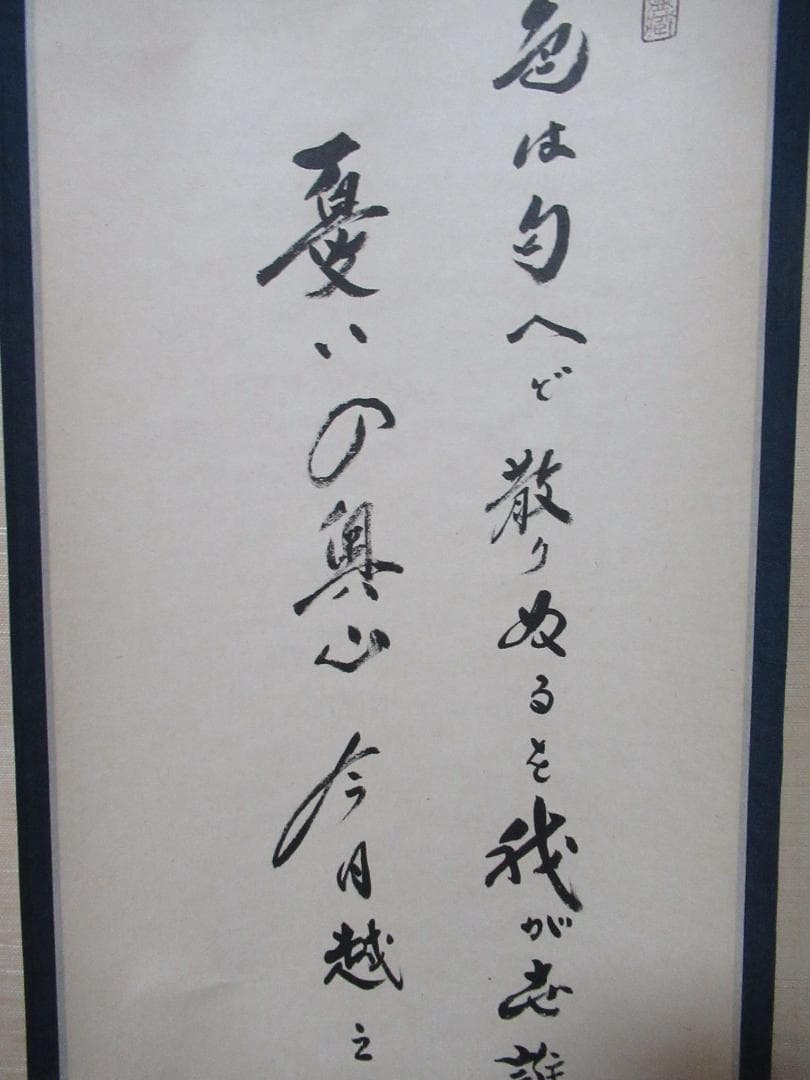 色は匂へど散りぬるを我が世誰
憂いの奥山今日越え